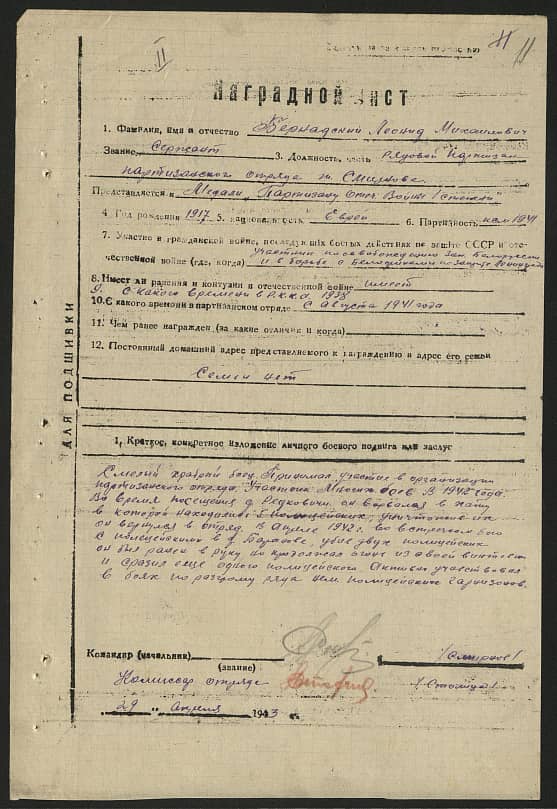 II
11
Наградной лист
1. Фамилия, имя и отчество Бернадский Леонид Михайлович
Звание Сержант 3. Должность, часть рядовой партизан
партизанского отряда т. Смирнова
Представляется к Медали "Партизану Отеч Войны I степени"
4. Год рождения 1917 5. национальность Еврей 6. Партизность 1941
7. Участие в гражданской войне, последующих боевых действиях по защите СССР и оте-
чественной войне (где, когда) участник по освобождению Зап. Белоруссии
и в борьбе с Белофинами по защите
8. Имеет ли ранения и контузии в отечественной войне имеет
9. С какого времени в Р.К.К.А. 1938
10. С какого времени в партизанском отряде с Августа 1941 года
11. Чем ранее награжден (за какие отличия и когда)
12. Постоянный домашний адрес представляемого к награждению и адрес его семьи
Семьи нет
ДЛЯ ПОДШИВКИ
1. Краткое, конкретное изложение личного боевого подвига или заслуг
Смелый храбрый боец. Принимал участие в организации
партизанского отряда. Участник Многих боев. В 1942 года.
Во время посещения д. Редковичи, он ворвался в хату
в которой находились полицейских, уничтожив их
он вернулся в отряд. В Апреле 1942 г. во встречном бою
с полицейскими в д. убив двух полицейских
он был ранен в руку но продолжал огонь из своей винтовки
и сразил еще одного полицейского. Активно участвовал
в боях по разгрому ряда нем. полицейских гарнизонов.
Командир (начальник) /Смирнов/
(звание)
Комиссар отряда
29 " апреля 1943 г.